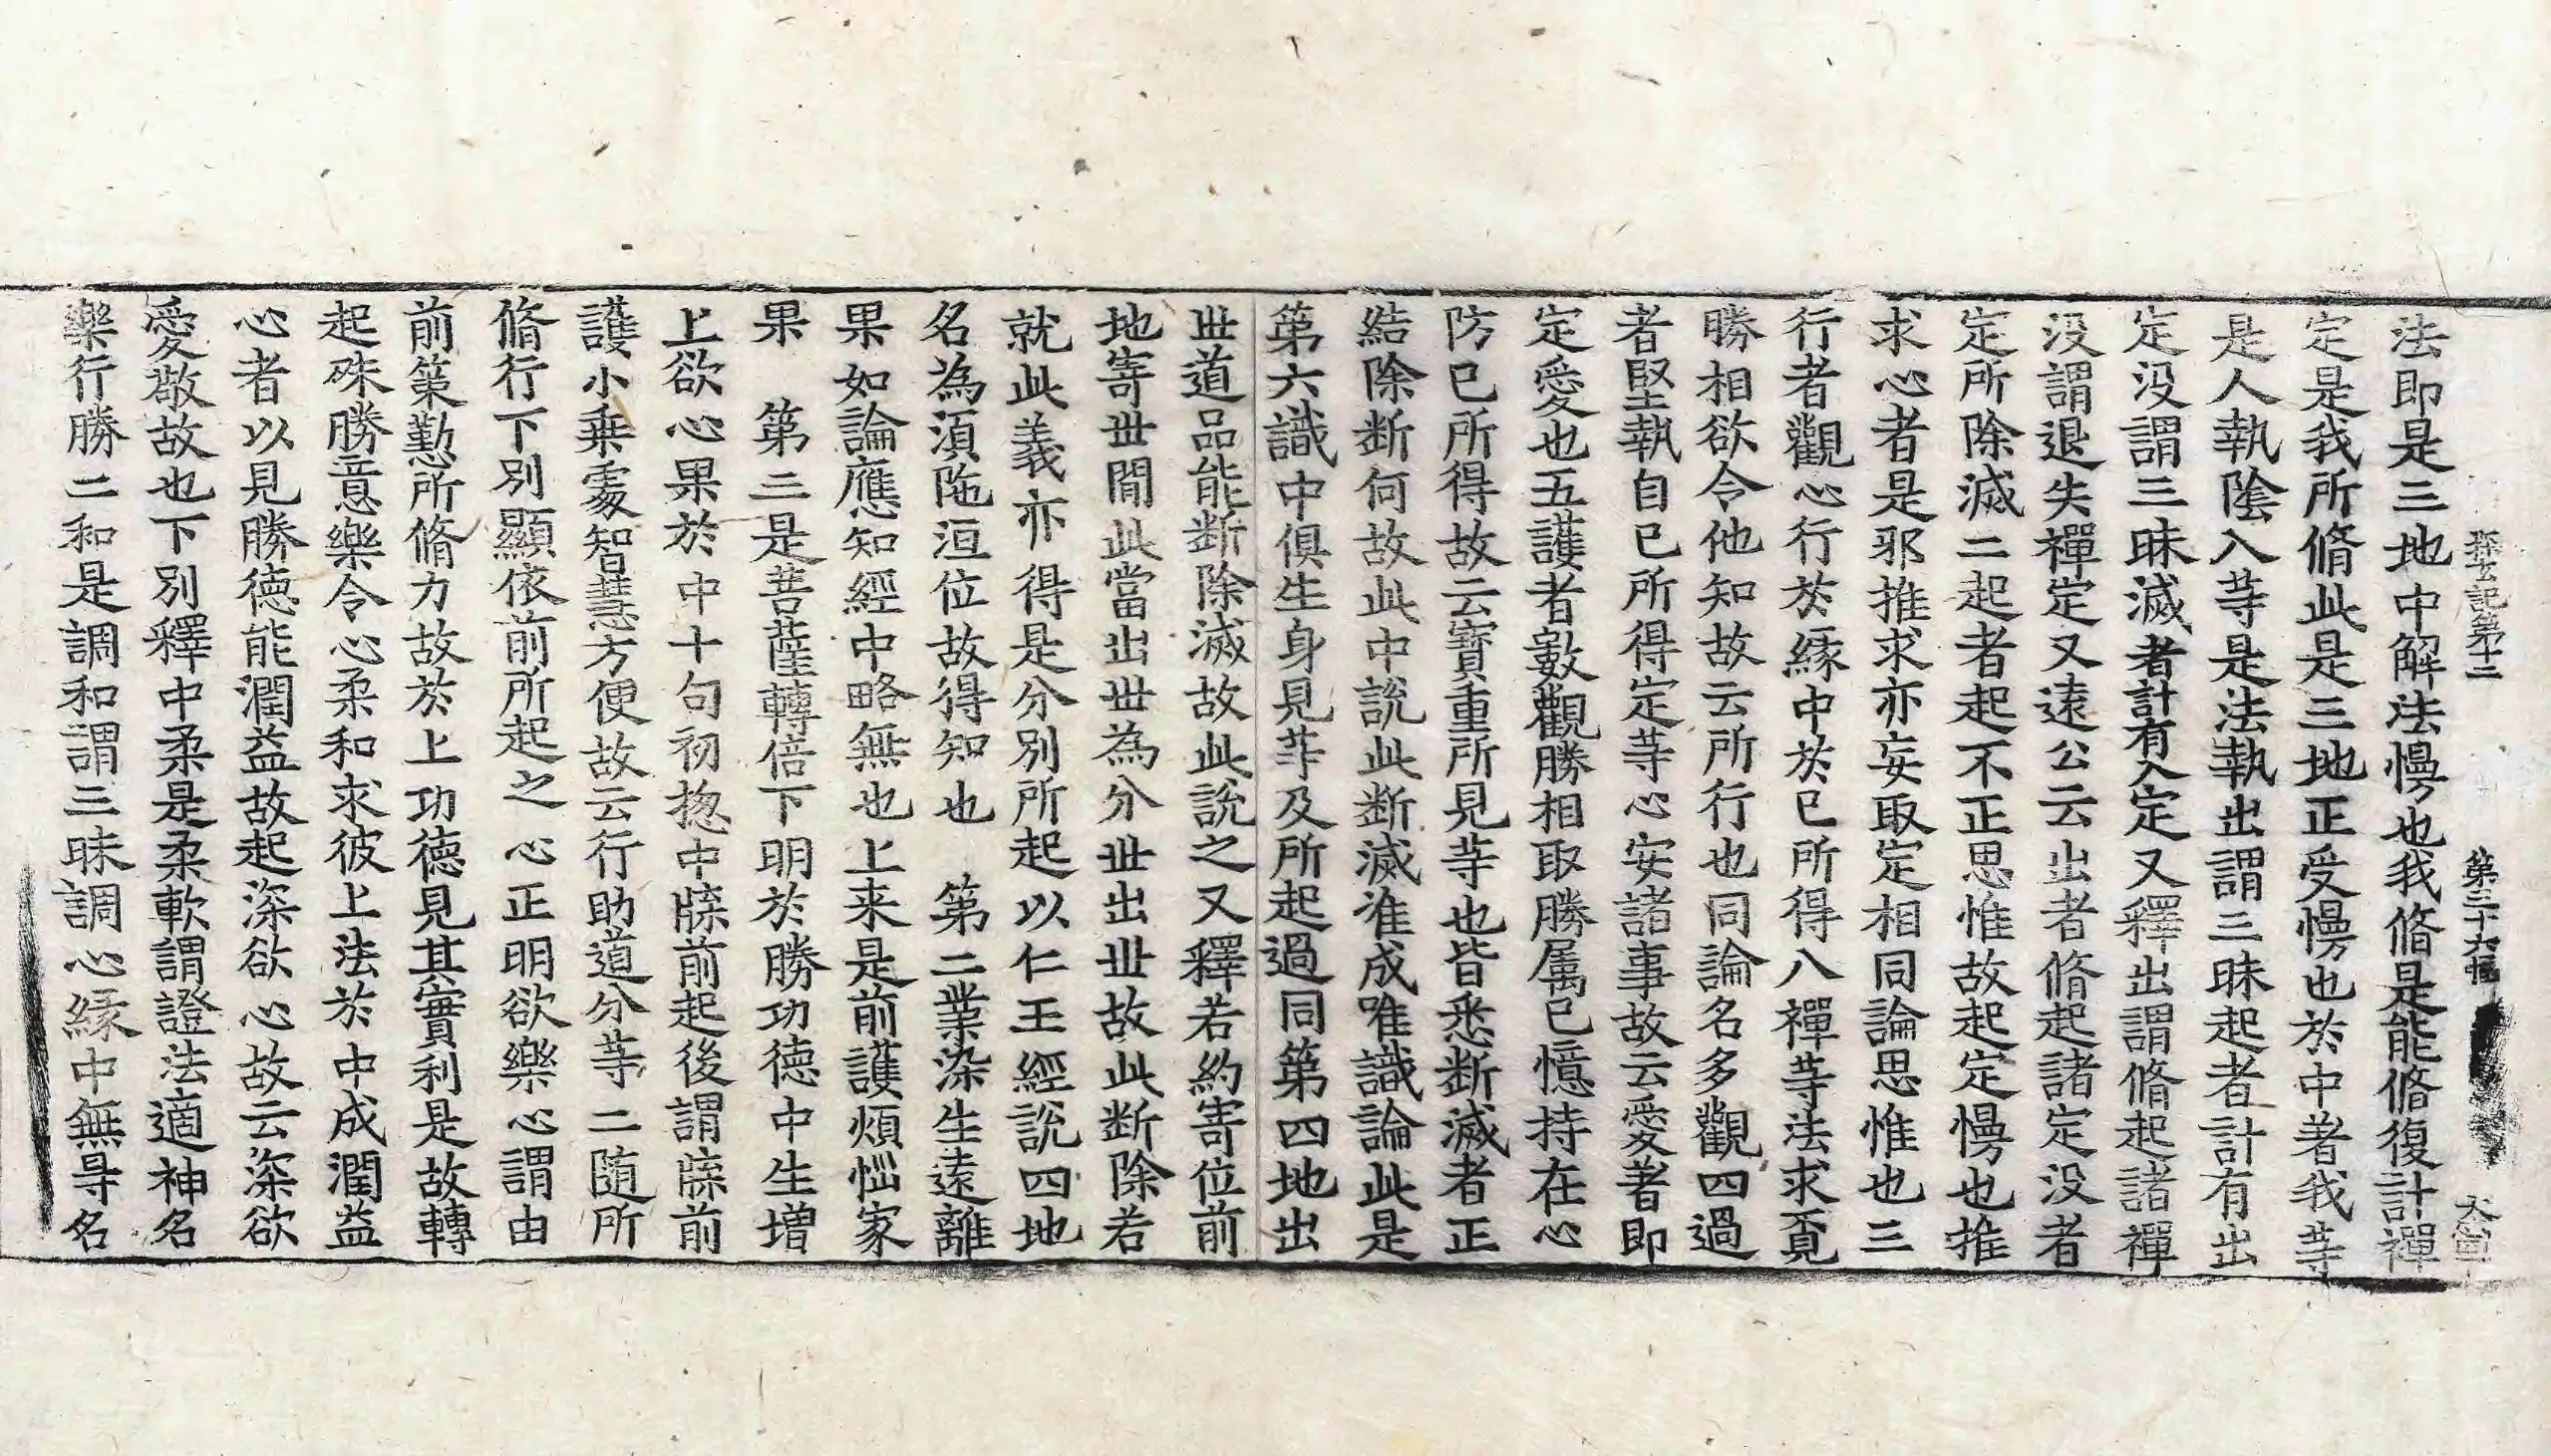 探玄記第十二 第三十六幅
法即是三地中解法慢也我脩是能脩復計禪
定是我所脩此是三地正受慢也於中著我等
是人執陰入等是法執出謂三昧起者計有出
定没謂三昧滅者計有入定又釋出謂脩起諸禪
没謂退失禪定又遠公云出者脩起諸定没者
定所除滅二起者起不正思惟故起定慢也推
求心者是邪推求亦妄取定相同論思惟也三
行者觀心行於緣中於已所得八禪等法求覓
勝相欲令他知故云所行也同論名多觀四過
者堅執自已所得定等心安諸事故云愛著即
定愛也五護者數觀勝相取勝属已憶持在心
防已所得故云寳重所見等也皆悉断滅者正
結除断何故此中說此断滅准成唯識論此是
第六識中俱生身見等及所起過同第四地出
世道品能断除滅故此說之又釋若約寄位前
地寄世間此當出世為分世出世故此断除若
就此義亦得是分别所起以仁王經說四地
名為湏陁洹位故得知也 第二業染生遠離
果如論應知經中略無也上来是前護煩惱家
果 第三是菩薩轉倍下明於勝功德中生增
上欲心果於中十句初揔中牒前起後謂牒前
護小乗䖏智慧方便故云行助道分等二随所
脩行下别顯依前所起之心正明欲樂心謂由
前策懃所脩力故於上功德見其實利是故轉
起殊勝意樂令心柔和求彼上法於中成潤益
心者以見勝德能潤益故起深欲心故云深欲
愛敬故也下别釋中柔是柔軟謂證法適神名
樂行勝二和是調和謂三昧調心緣中無㝵名